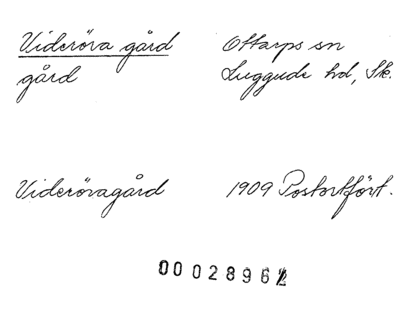 Videröra gård Ottarps sn
gård Luggude hd, Sk.
Videröragård 1909 Postortfört.
00028962